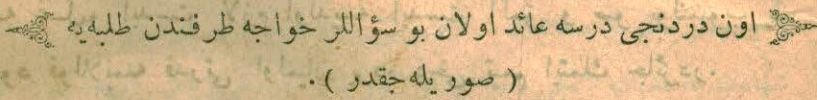 اون دردنجی درسه عائد اولان بو سؤاللر خواجه طرفندن طلبه‌یه
( صوریله‌جقدر ) .